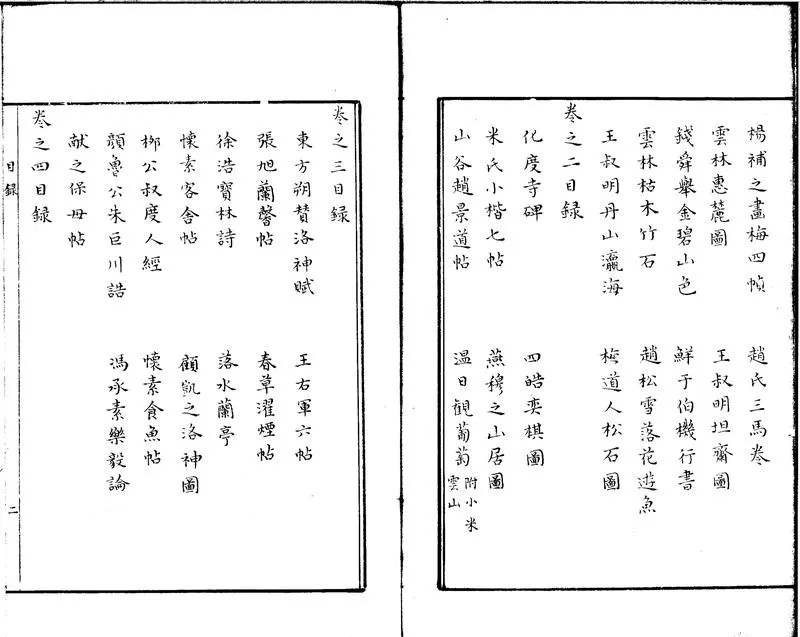 楊補之畫梅四幀　趙氏三馬卷
雲林惠麓圖　王叔明坦齋圖
錢舜舉金碧山色　鮮于伯機行書
雲林枯木竹石　趙松雪落花遊魚
王叔明丹山瀛海　梅道人松石圖
卷之二目録
化度寺碑　四皓奕棋圖
米氏小楷七帖　燕穆之山居圖
山谷趙景道帖　温日觀葡萄附小米雲山
卷之三目録
東方朔賛洛神賦　王右軍六帖
張旭蘭馨帖　春草濯煙帖
徐浩寶林詩　落水蘭亭
懷素客舍帖　顧凱之洛神圖
柳公叔度人經　懷素食魚帖
顔魯公朱巨川誥　馮承素樂毅論
献之保母帖
卷之四目録
目録
二